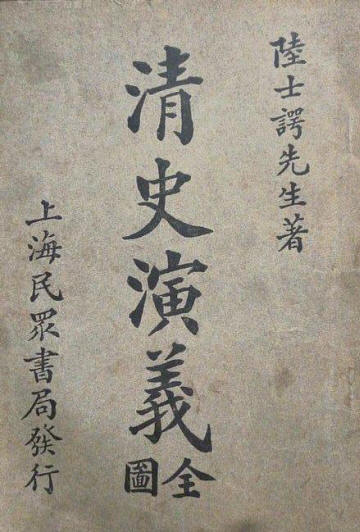 陸士諤先生著
清史演義
全圖
上海民眾書局發行